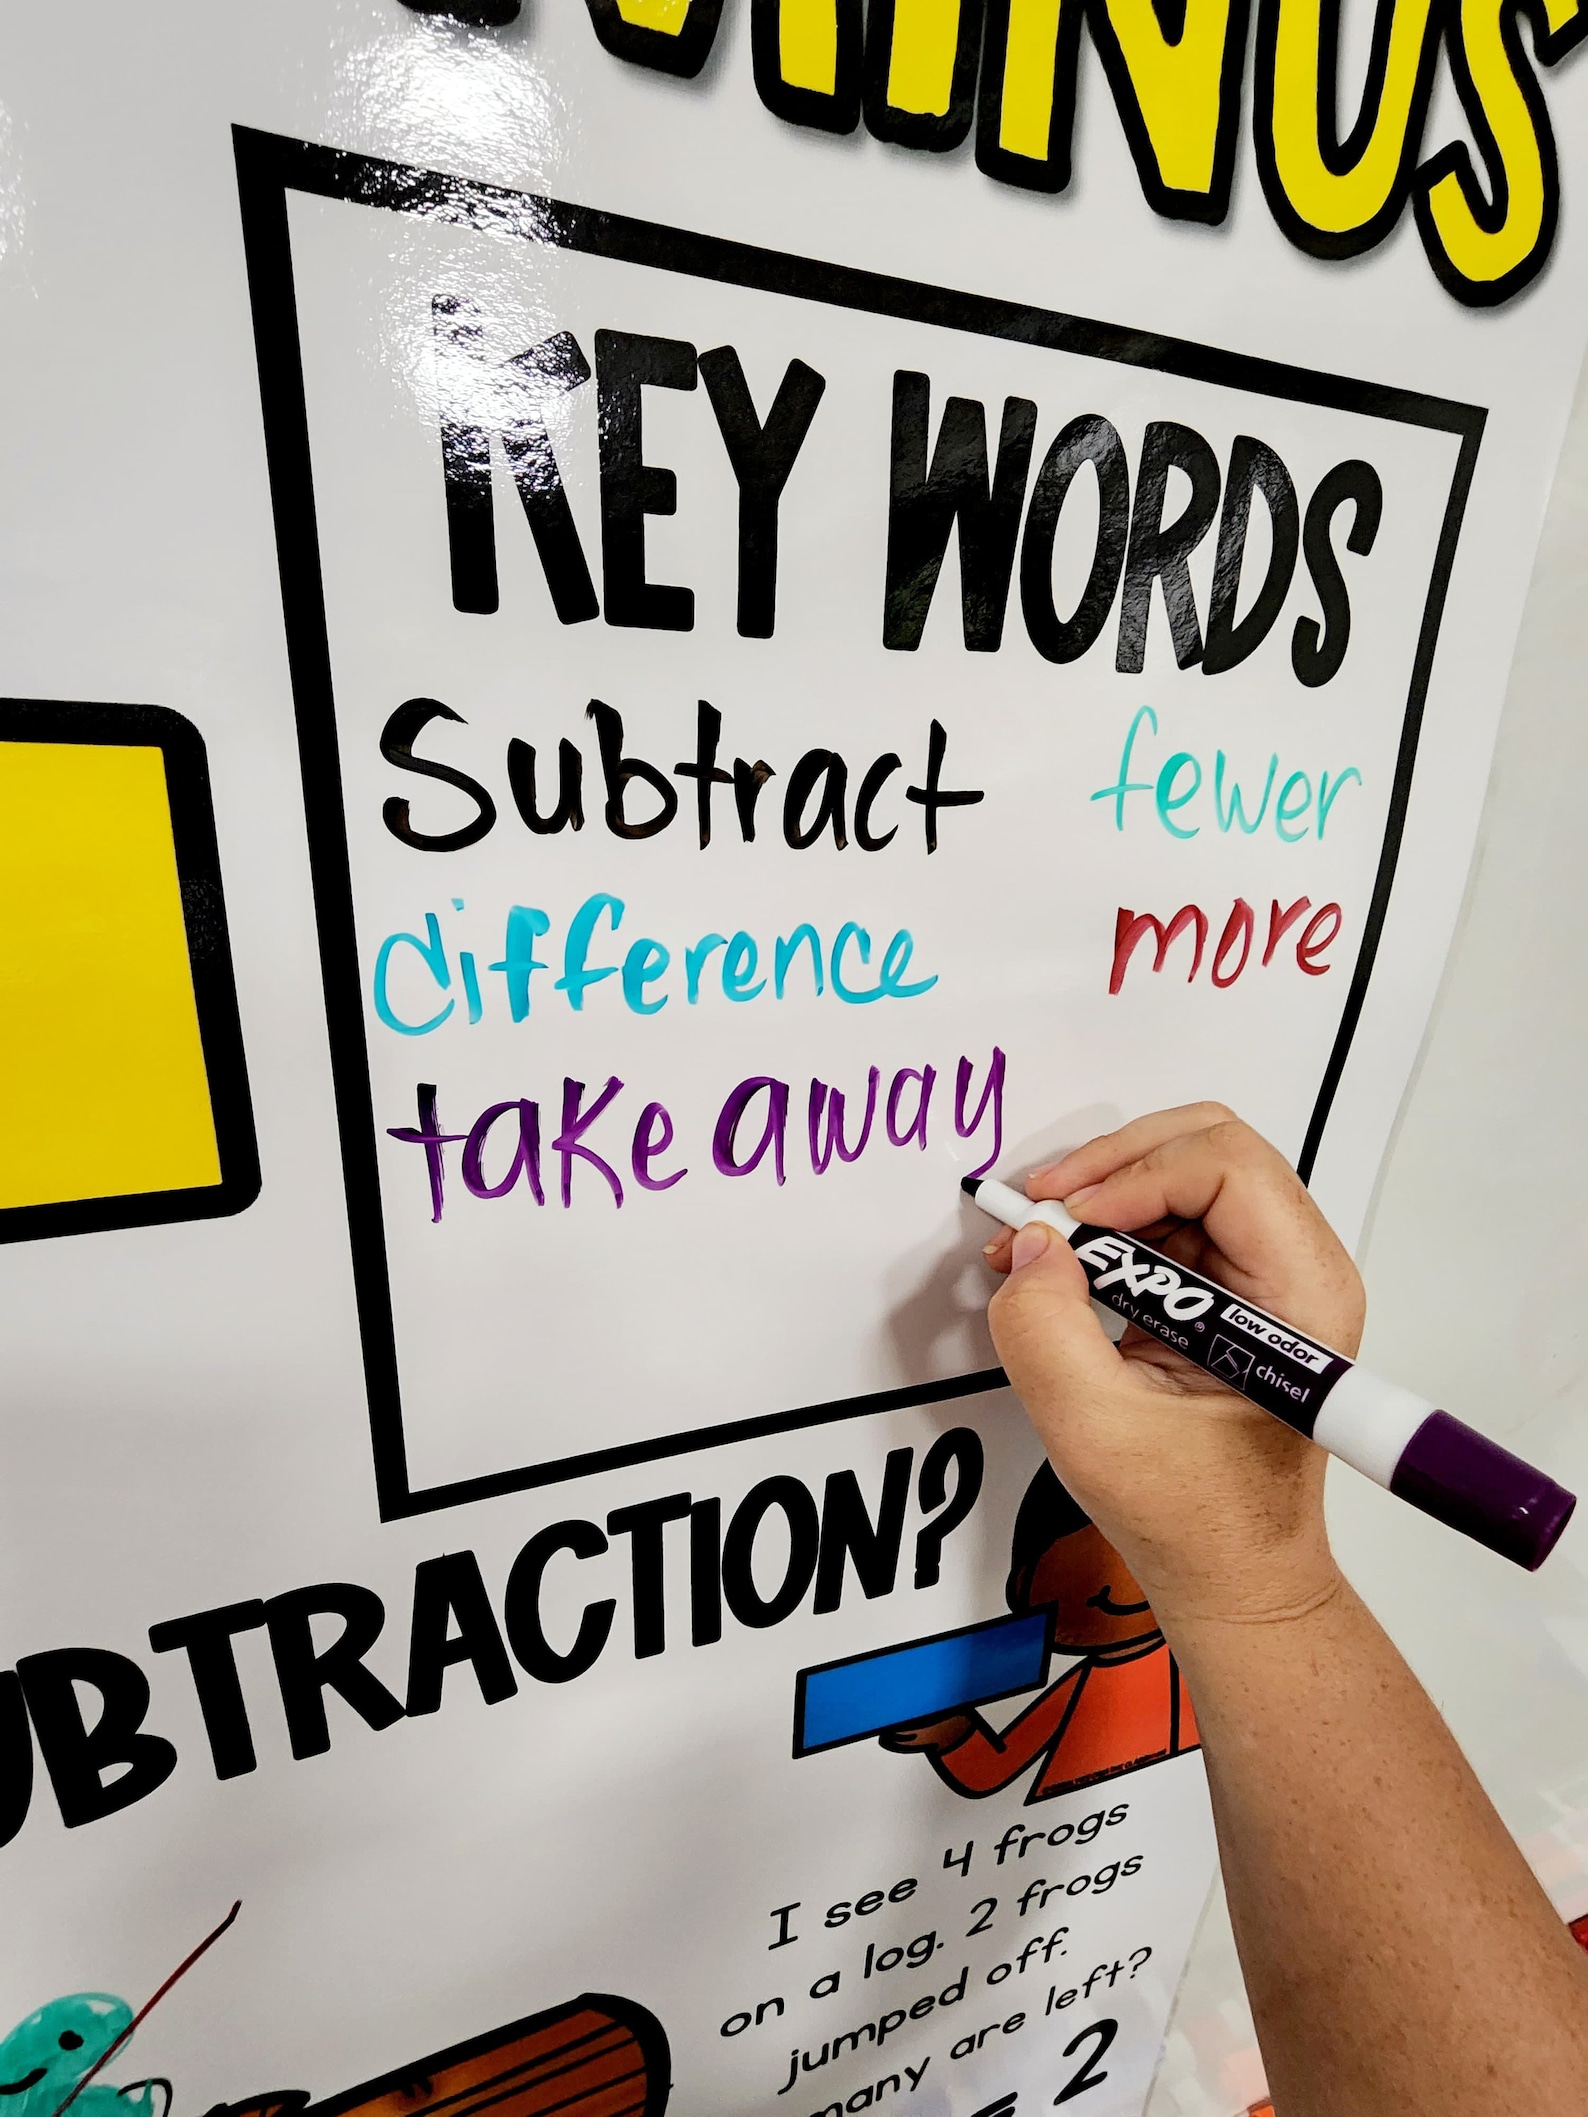 MINUS
KEY WORDS
Subtract fewer
difference more
take away
EXPO
low odor
dry erase
chisel
UBTRACTION?
I see 4 frogs
on a log. 2 frogs
jumped off.
many are left?
= 2